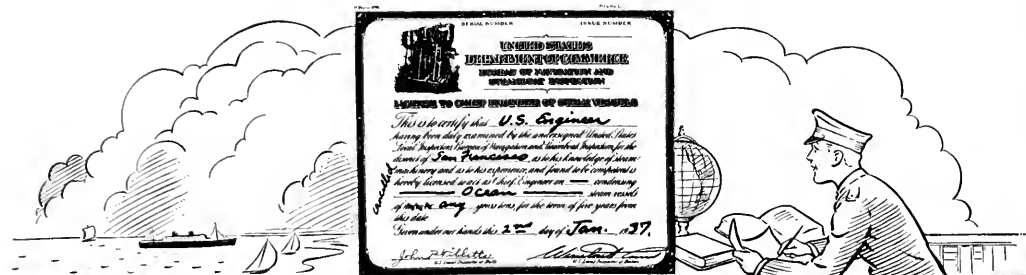 SERIAL NUMBER ISSUE NUMBER
UNITED STATES
DEPARTMENT OF COMMERCE
BUREAU OF NAVIGATION AND
STEAMBOAT INSPECTION
LICENSE TO CHIEF ENGINEER OF STEAM VESSELS
This is to certify that U.S. Engineer
having been duly examined by the undersigned United States
Local Inspectors Bureau of Navigation and Steamboat Inspection for the
district of San Francisco, as to his knowledge of steam
machinery and as to his experience, and found to be competent is
hereby licensed to act as Chief Engineer on — condensing
Ocean steam vessels
of any gross tons, for the term of five years from
this date
Given under our hands this 2nd day of Jan. 1937.
cancelled
U.S. Local Inspector of Hulls U.S. Local Inspector of Boilers